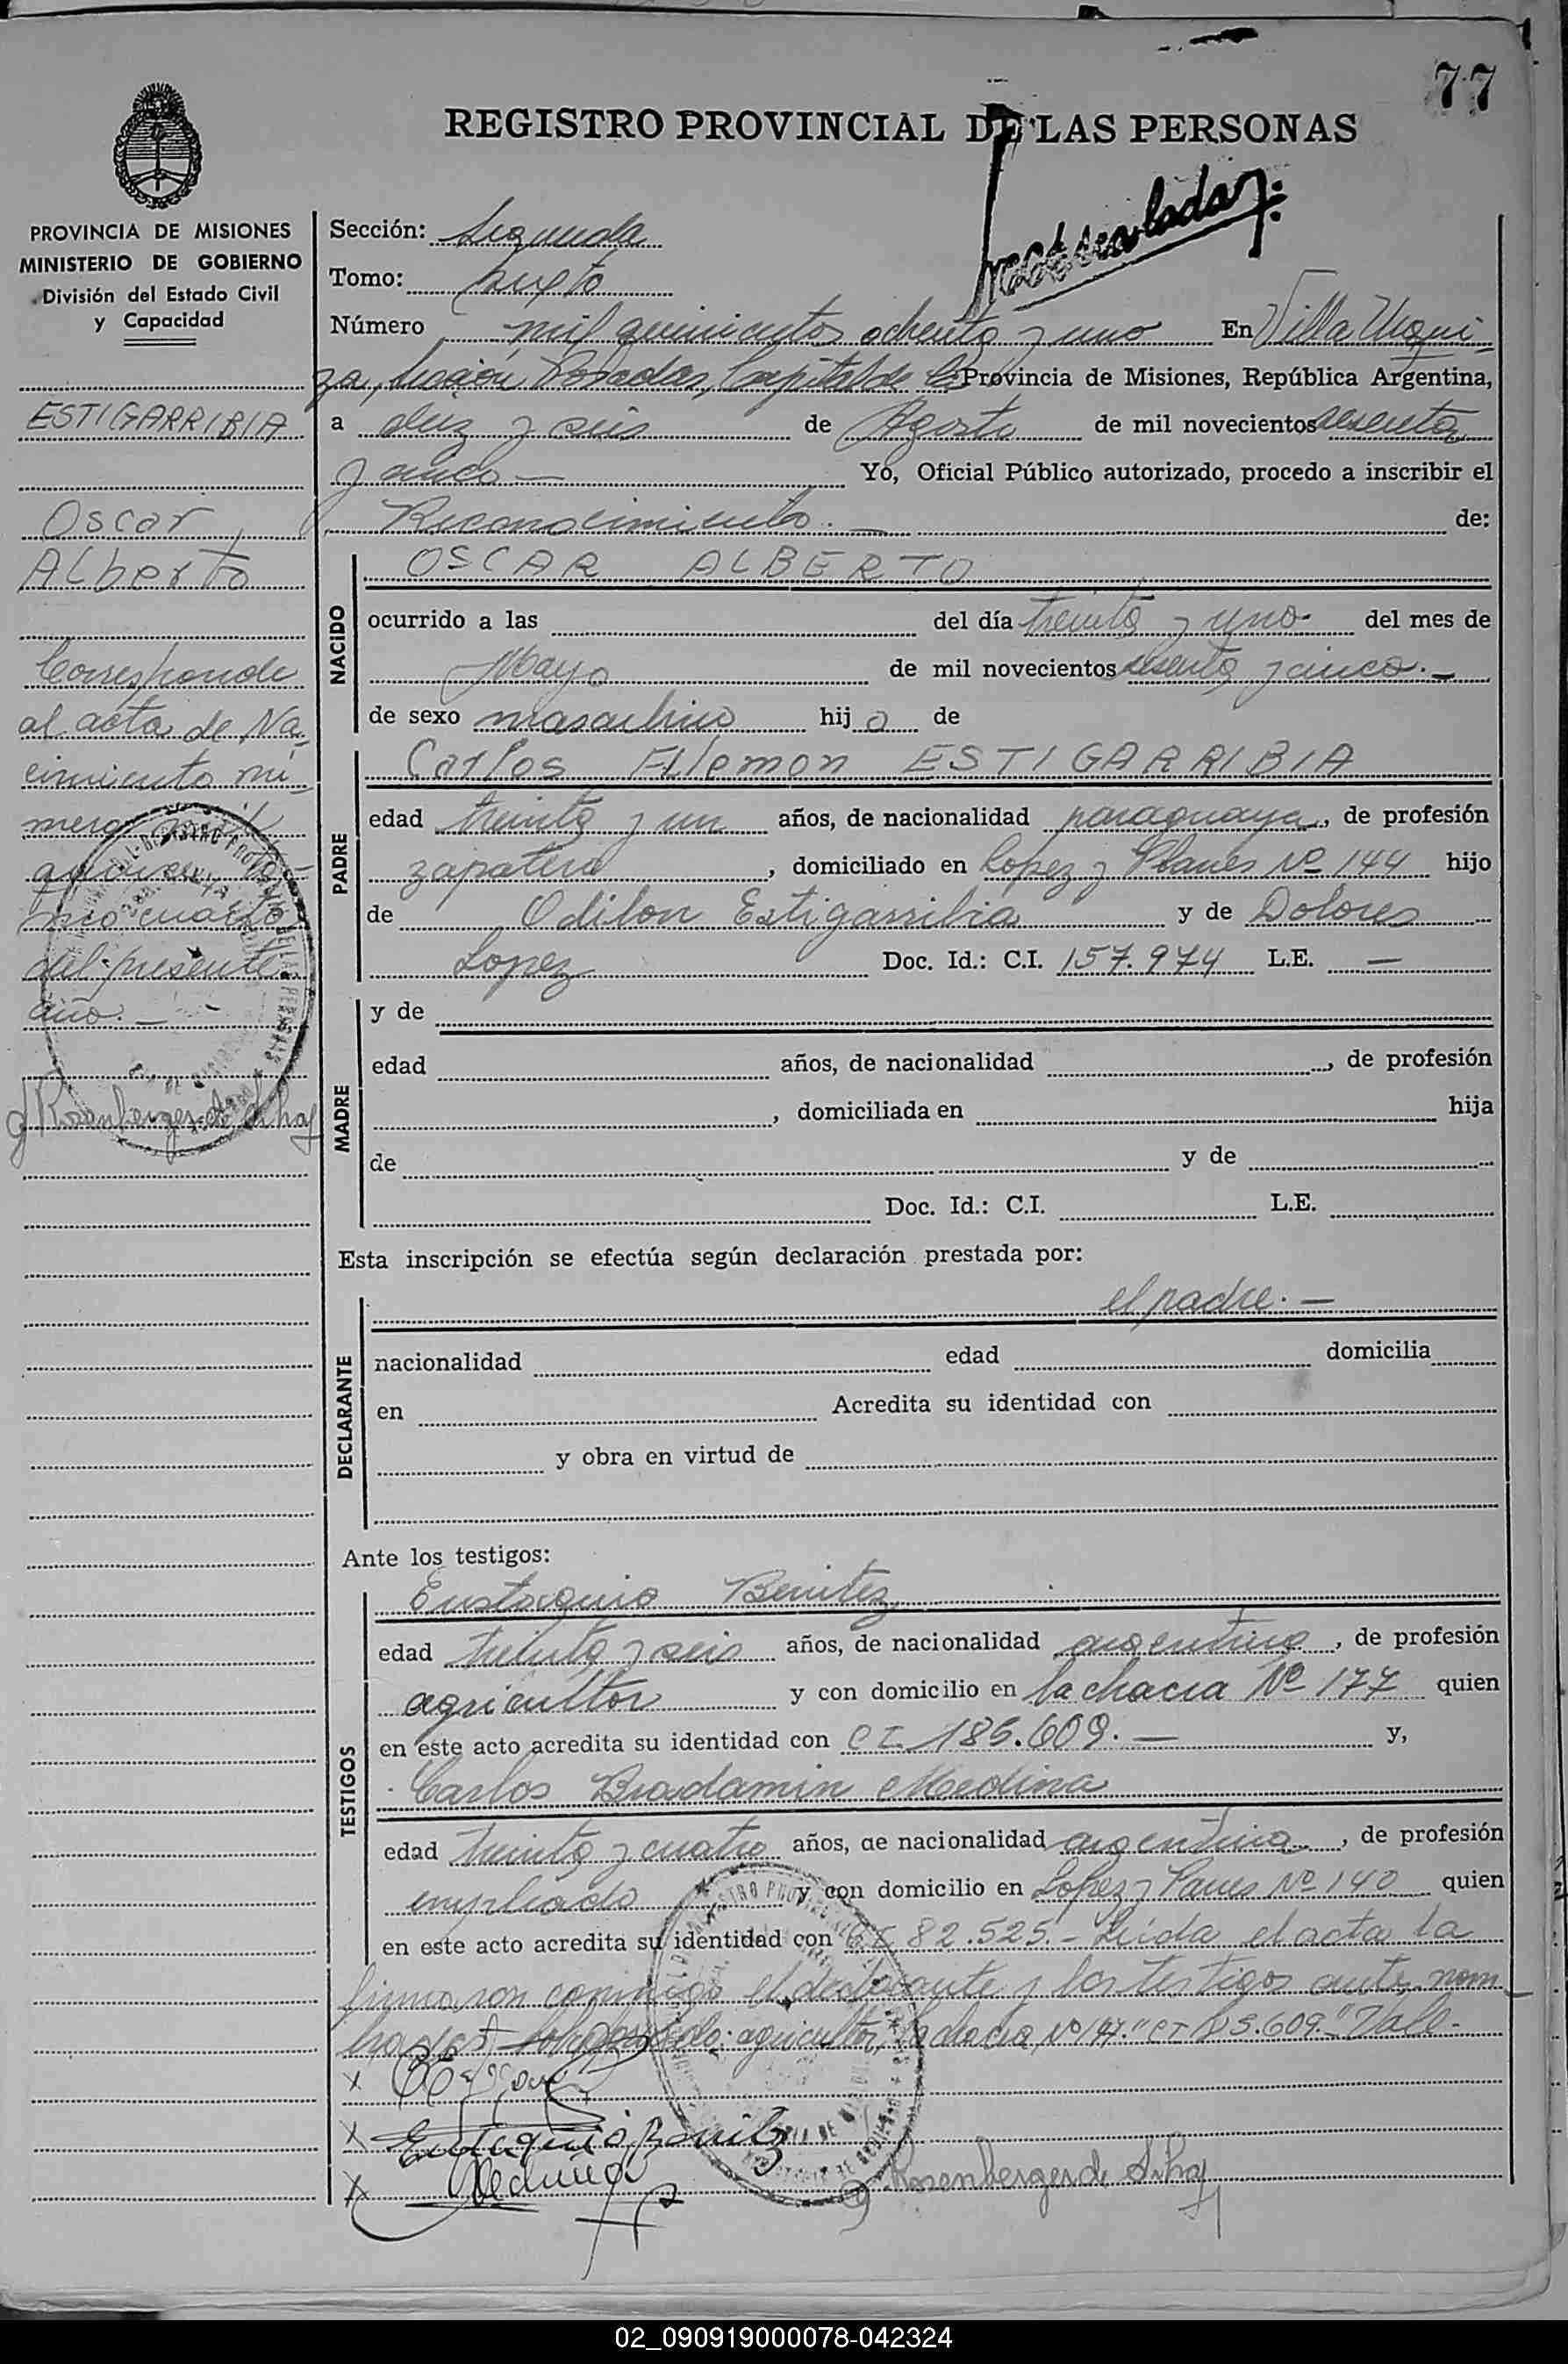 77
REGISTRO PROVINCIAL DE LAS PERSONAS
PROVINCIA DE MISIONES
MINISTERIO DE GOBIERNO
División del Estado Civil
y Capacidad
ESTIGARRIBIA
Oscar
Alberto
Corresponde
al acta de Na-
cimiento nú-
mero mil
del presente
año. —
Rosenberger de
Sección: Segunda
Tomo: Sexto
Número mil quinientos ochenta y uno En Villa Urqui-
za, Sección Posadas, Capital de la Provincia de Misiones, República Argentina,
a diez y seis de Agosto de mil novecientos sesenta
y cinco — Yo, Oficial Público autorizado, procedo a inscribir el
Reconocimiento. — de:
NACIDO
OSCAR ALBERTO
ocurrido a las del día treinta y uno del mes de
Mayo de mil novecientos sesenta y cinco. —
de sexo masculino hijo de
PADRE
Carlos Filemon ESTIGARRIBIA
edad treinta y un años, de nacionalidad paraguaya, de profesión
zapatero, domiciliado en Lopez y Planes Nº 144 hijo
de Odilon Estigarribia y de Dolores
Lopez Doc. Id.: C.I. 157.974 L.E. —
MADRE
y de
edad años, de nacionalidad , de profesión
, domiciliada en hija
de y de
Doc. Id.: C.I. L.E.
Esta inscripción se efectúa según declaración prestada por:
DECLARANTE
el padre. —
nacionalidad edad domicilia
en Acredita su identidad con
y obra en virtud de
Ante los testigos:
TESTIGOS
Eustaquio Benitez
edad treinta y seis años, de nacionalidad argentina, de profesión
agricultor y con domicilio en la chacra Nº 177 quien
en este acto acredita su identidad con CI. 185.609. — y,
Carlos Bradamin Medina
edad treinta y cuatro años, de nacionalidad argentina, de profesión
empleado y con domicilio en Lopez y Planes Nº 140 quien
en este acto acredita su identidad con CI 82.525. - Leída el acta la
firmaron conmigo el declarante y los testigos ante nom-
brados. agricultor, la chacra, Vale.
x
x Eustaquio Benitez
x Medina
Rosenberger de
02_090919000078-042324